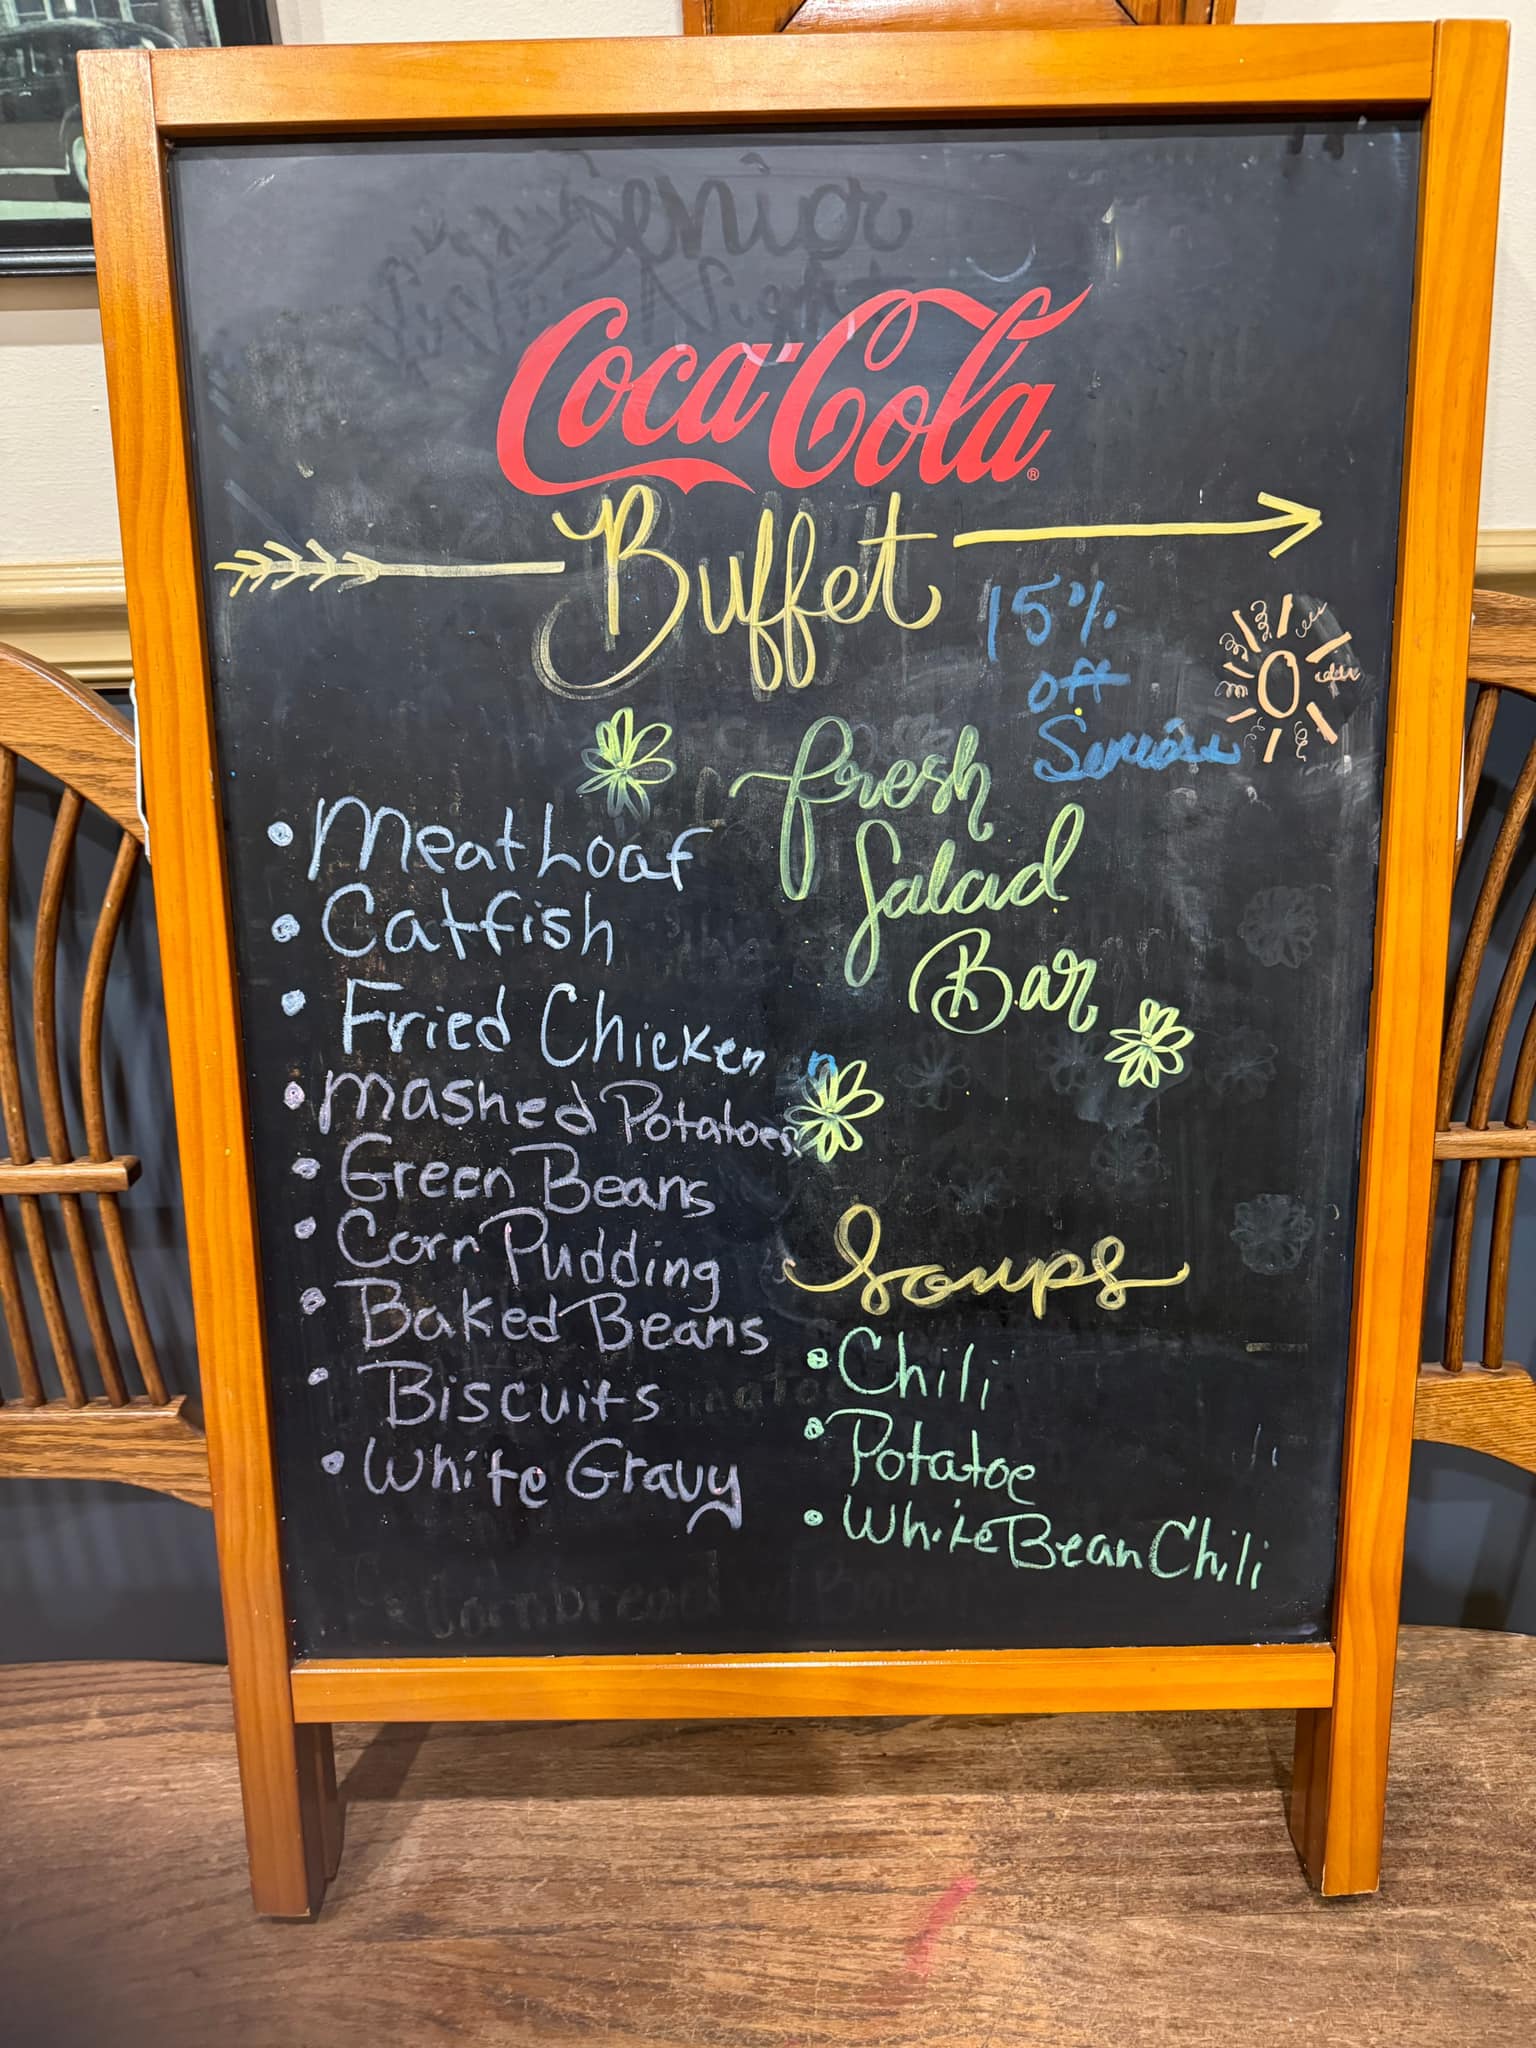 Senior
Night
Coca-Cola®
Buffet
15%
off
Seniors
• Meat Loaf
• Catfish
• Fried Chicken
• Mashed Potatoes
• Green Beans
• Corn Pudding
• Baked Beans
• Biscuits
• White Gravy
fresh
Salad
Bar
Soups
• Chili
• Potatoe
• White Bean Chili
Cornbread